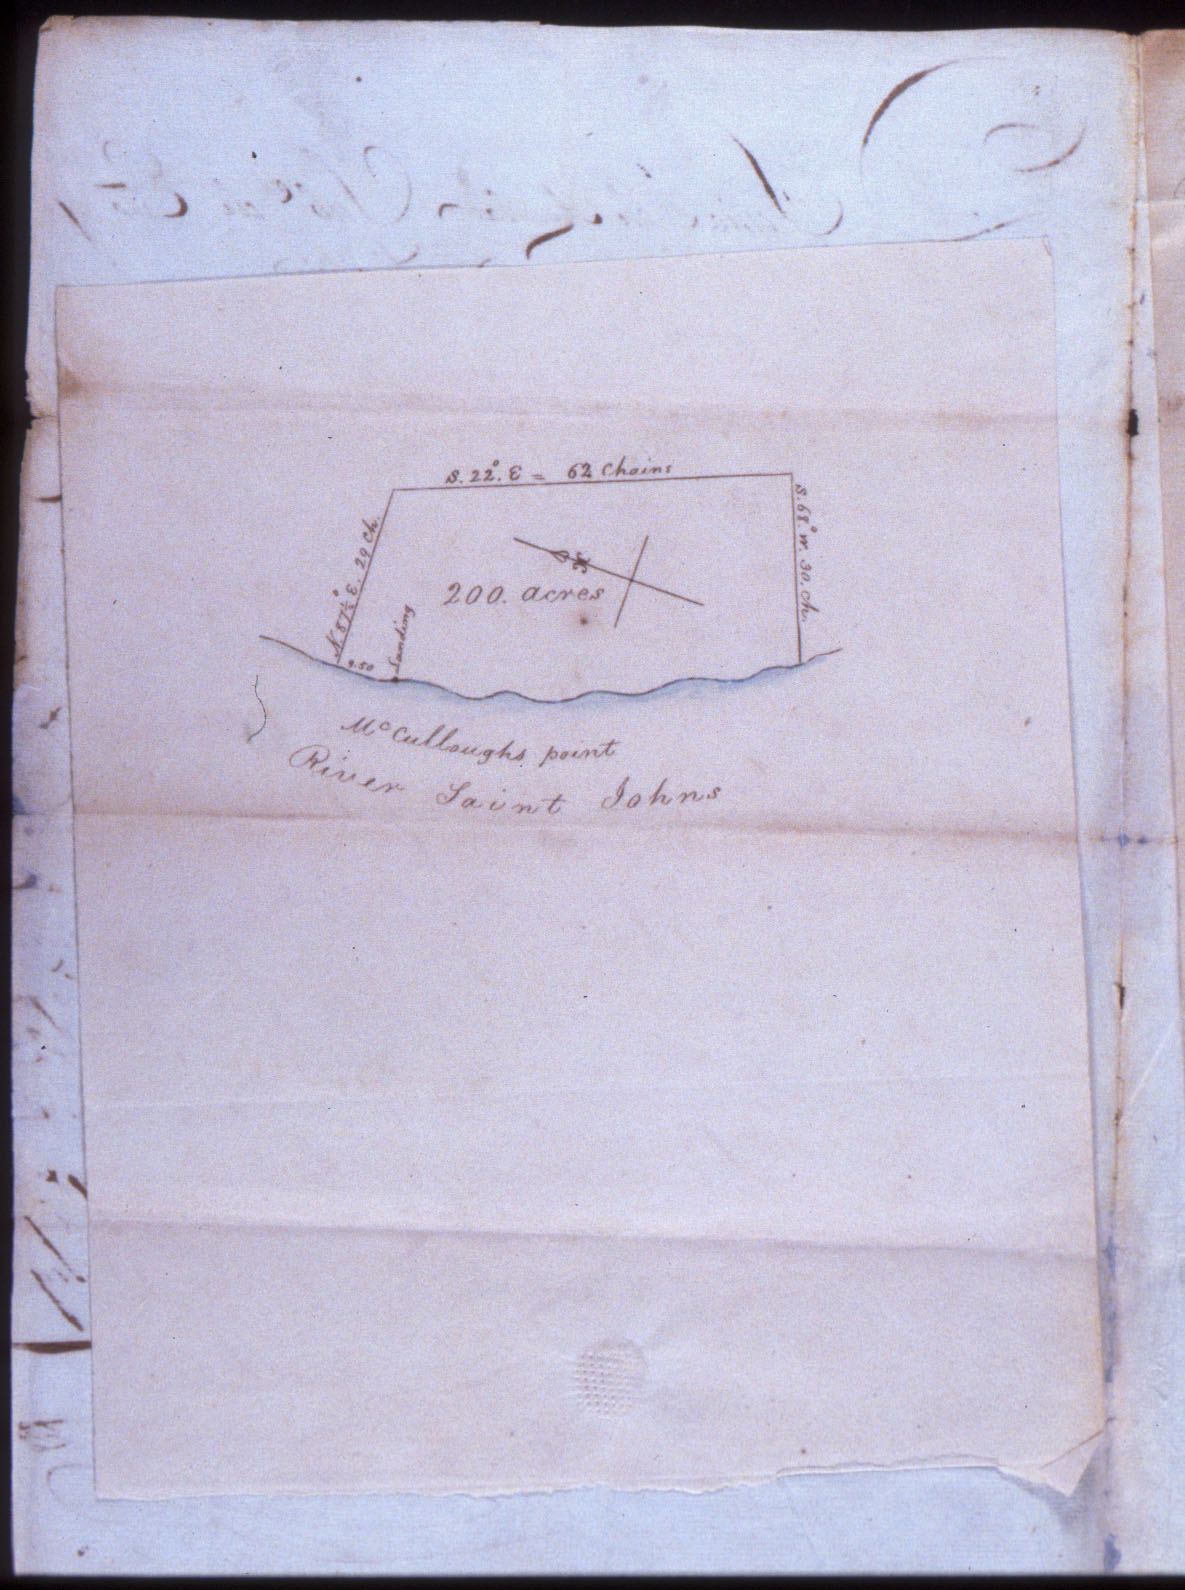 S. 22°. E = 62 Chains
S. 68° W. 30. Ch.
N 87½° E. 29 Ch.
200. acres
Landing
9.50
Mc Culloughs point
River Saint Johns